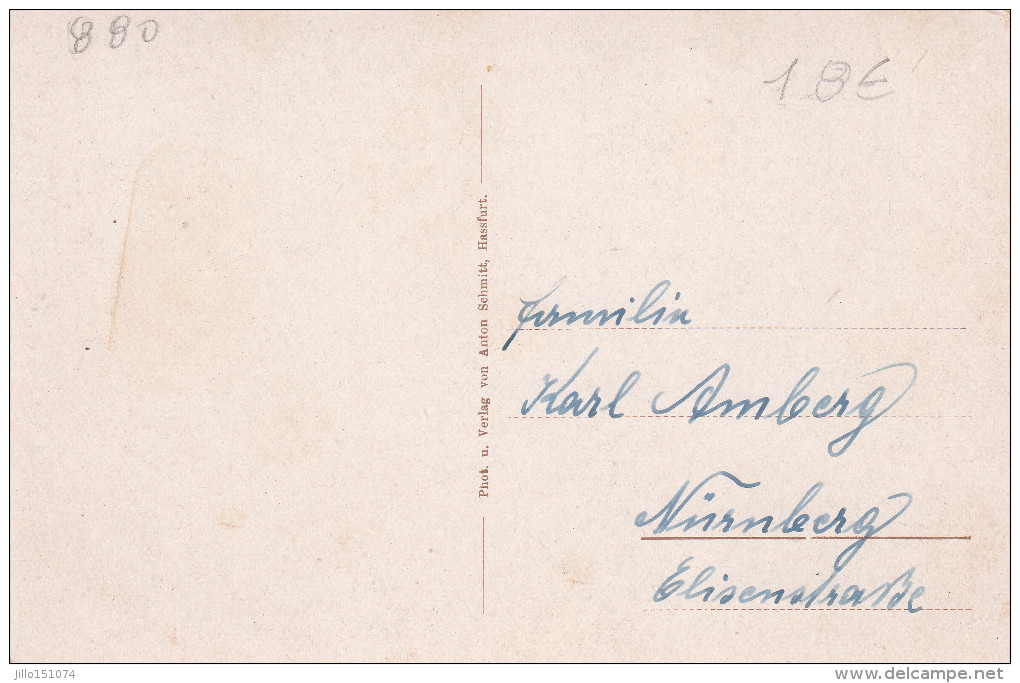 880
18€
Phot. u. Verlag von Anton Schmitt, Hassfurt.
Familie
Karl Amberg
Nürnberg
Elisenstraße
jillo151074
www.delcampe.net